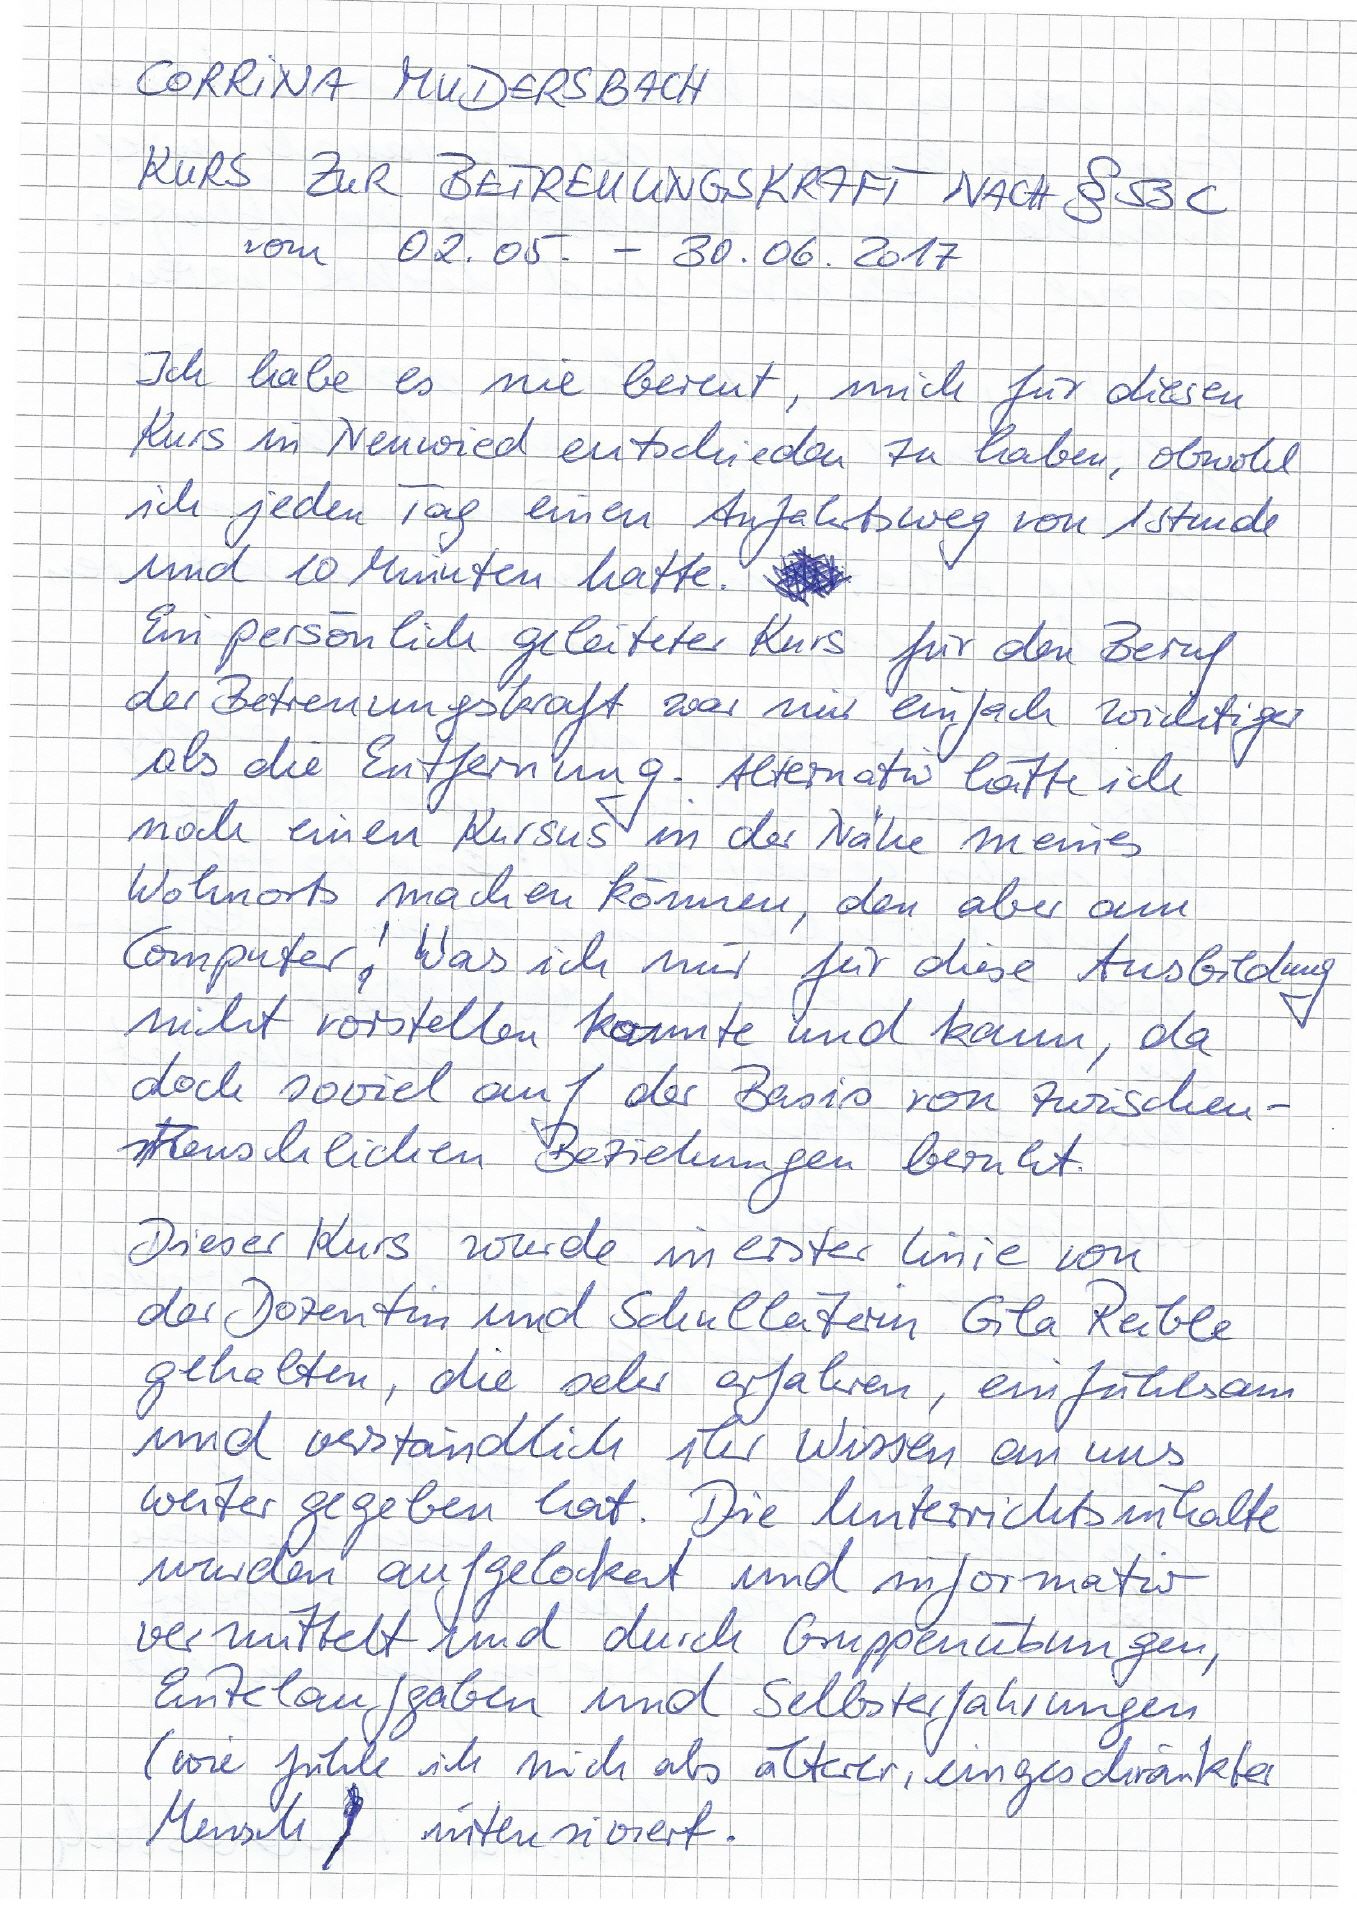 CORRINA MUDERSBACH
KURS ZUR BETREUUNGSKRAFT NACH § 53 C
vom 02.05. – 30.06.2017
Ich habe es nie bereut, mich für diesen
Kurs in Neuwied entschieden zu haben, obwohl
ich jeden Tag einen Anfahrtsweg von 1 Stunde
und 10 Minuten hatte.
Ein persönlich geleiteter Kurs für den Beruf
der Betreuungskraft war mir einfach wichtiger
als die Entfernung. Alternativ hätte ich
noch einen Kursus in der Nähe meines
Wohnorts machen können, den aber am
Computer! Was ich mir für diese Ausbildung
nicht vorstellen konnte und kann, da
doch soviel auf der Basis von zwischen-
menschlichen Beziehungen beruht.
Dieser Kurs wurde in erster Linie von
der Dozentin und Schulleiterin Gila Reible
gehalten, die sehr erfahren, einfühlsam
und verständlich ihr Wissen an uns
weiter gegeben hat. Die Unterrichtsinhalte
wurden aufgelockert und informativ
vermittelt und durch Gruppenübungen,
Einzelaufgaben und Selbsterfahrungen
(wie fühle ich mich als älterer, eingeschränkter
Mensch) intensiviert.